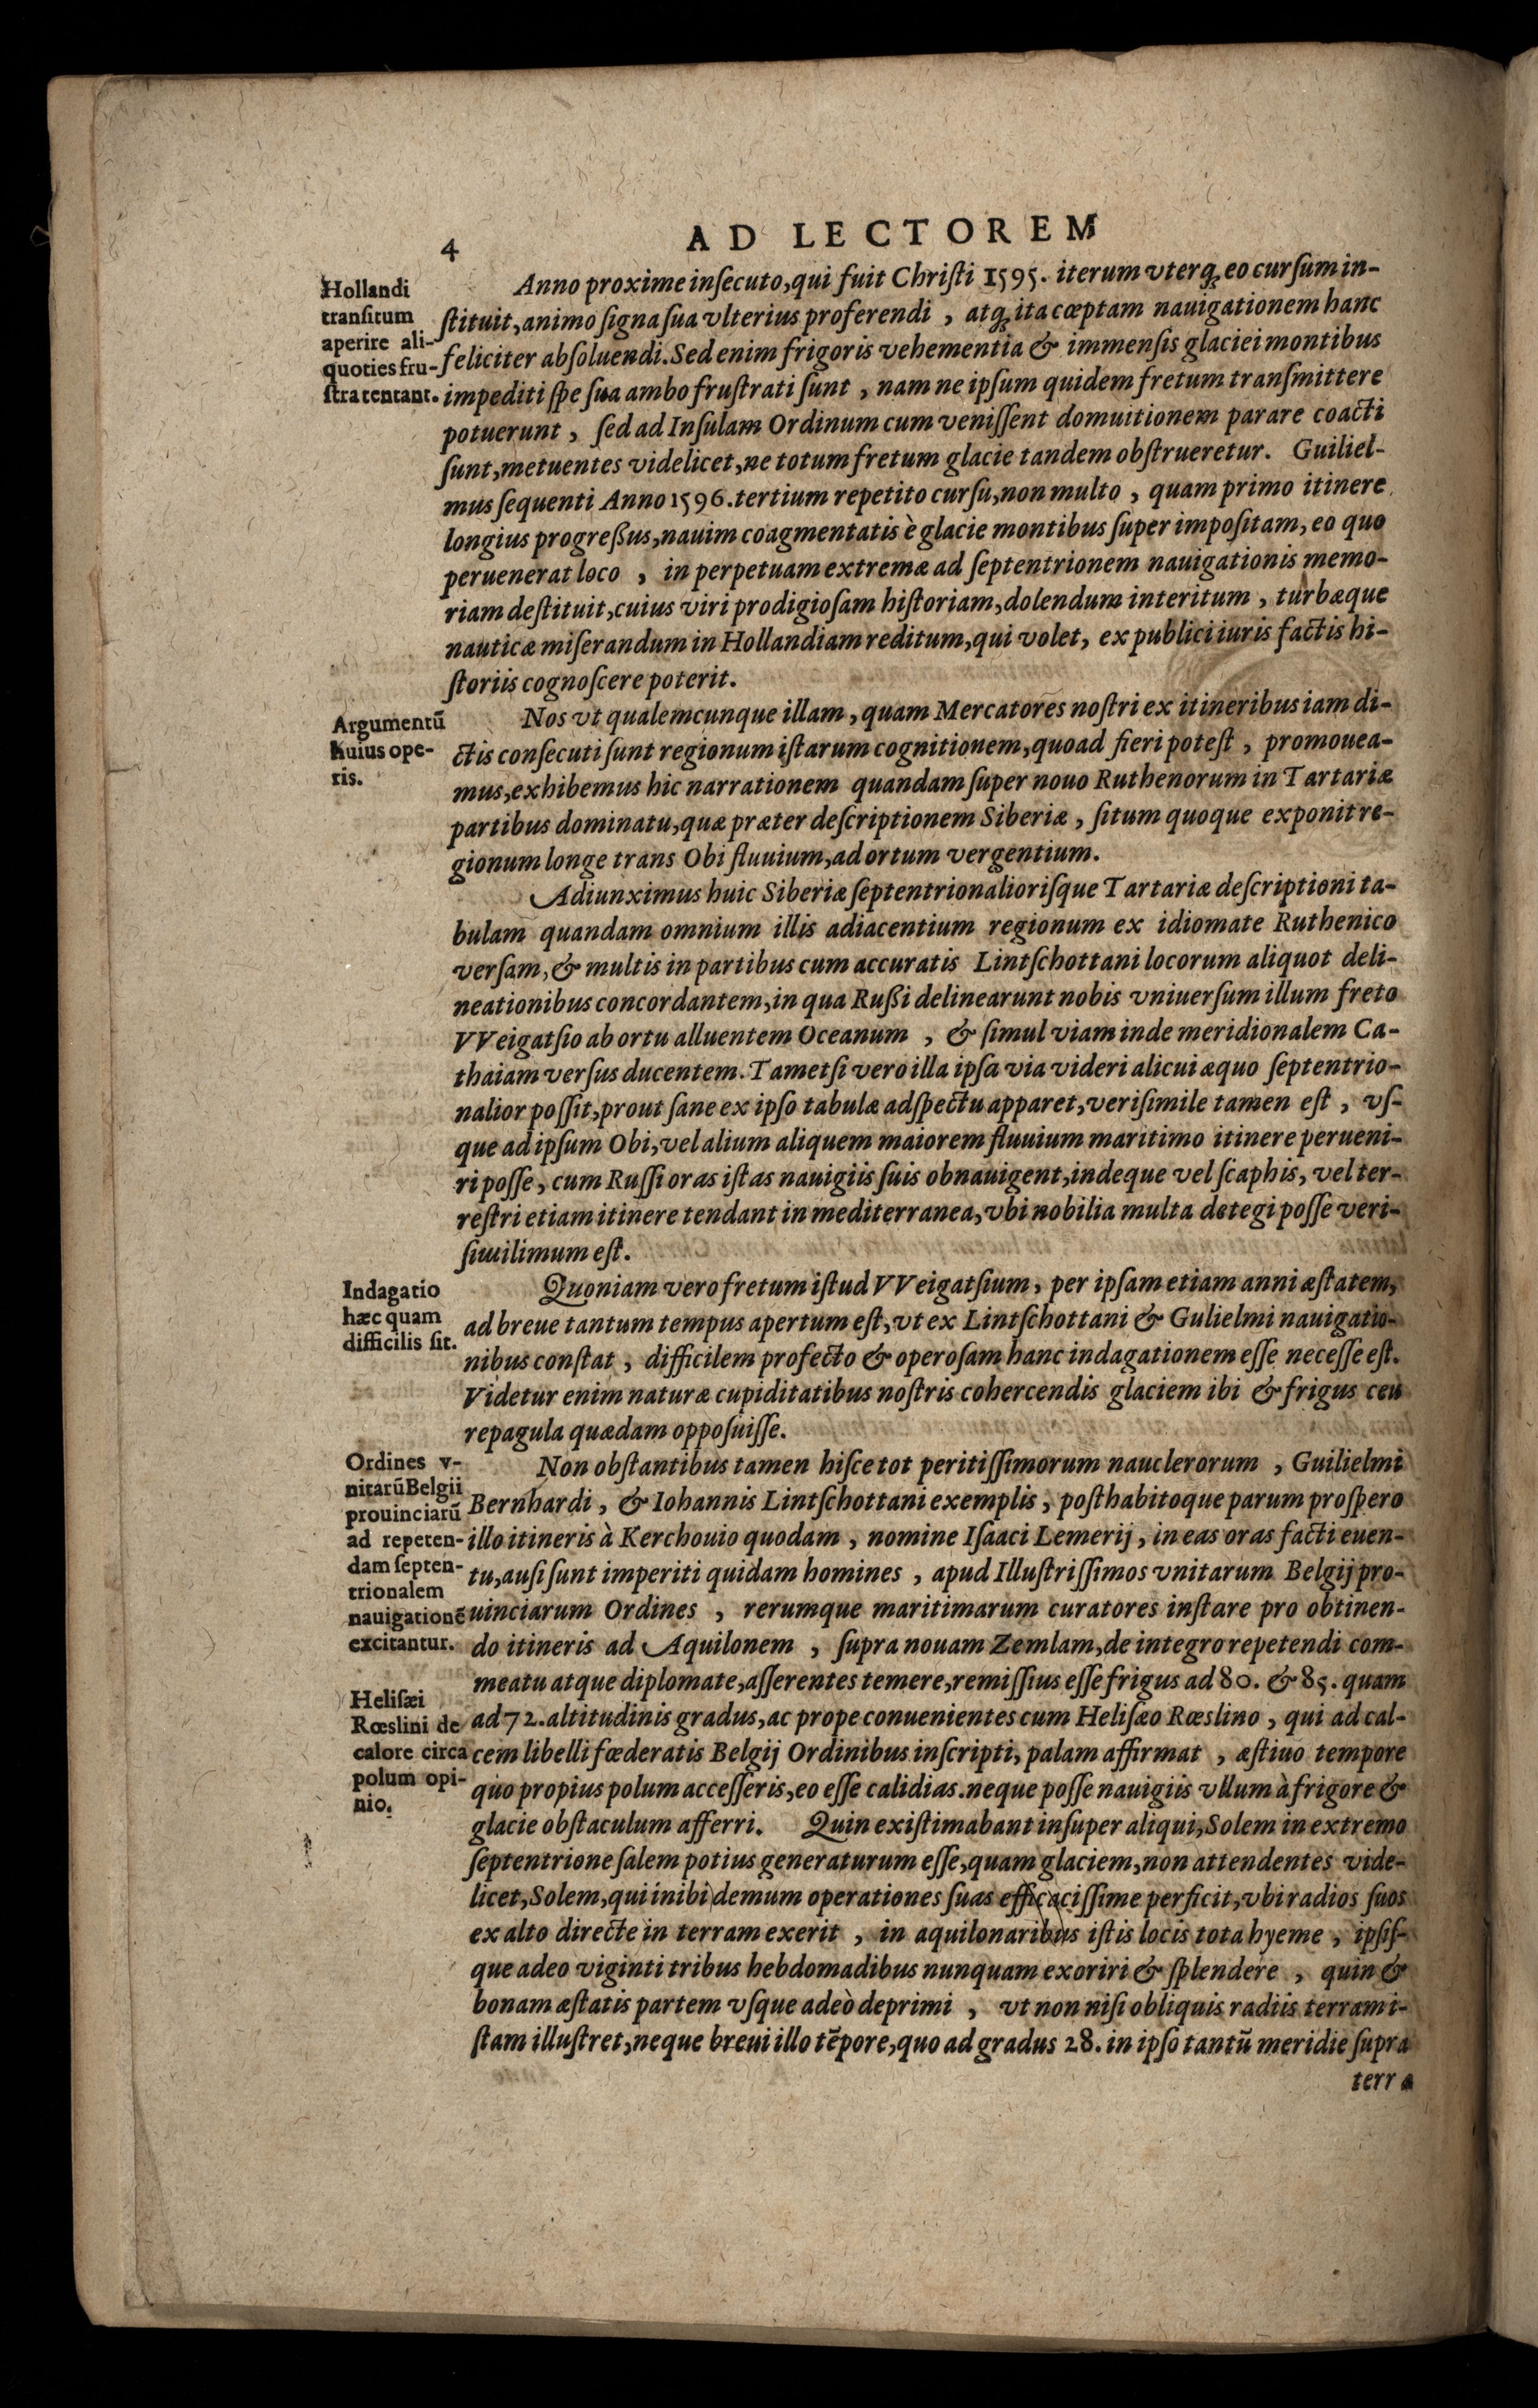 4
AD LECTOREM
Hollandi
tranſitum
aperire ali-
quoties fru-
ſtra tentant.
Anno proxime inſecuto, qui fuit Chriſti 1595. iterum vterq; eo curſum in-
ſtituit, animo ſigna ſua vlterius proferendi , atq; ita cœptam nauigationem hanc
feliciter abſoluendi. Sed enim frigoris vehementia & immenſis glaciei montibus
impediti ſpe ſua ambo fruſtrati ſunt , nam ne ipſum quidem fretum tranſmittere
potuerunt , ſed ad Inſulam Ordinum cum veniſſent domuitionem parare coacti
ſunt, metuentes videlicet, ne totum fretum glacie tandem obſtrueretur. Guiliel-
mus ſequenti Anno 1596. tertium repetito curſu, non multo , quam primo itinere
longius progreßus, nauim coagmentatis è glacie montibus ſuper impoſitam, eo quo
peruenerat loco , in perpetuam extremæ ad ſeptentrionem nauigationis memo-
riam deſtituit, cuius viri prodigioſam hiſtoriam, dolendum interitum , turbæque
nauticæ miſerandum in Hollandiam reditum, qui volet, ex publici iuris factis hi-
ſtoriis cognoſcere poterit.
Argumentū
huius ope-
ris.
Nos vt qualemcunque illam, quam Mercatores noſtri ex itineribus iam di-
ctis conſecuti ſunt regionum iſtarum cognitionem, quoad fieri poteſt , promouea-
mus, exhibemus hic narrationem quandam ſuper nouo Ruthenorum in Tartariæ
partibus dominatu, quæ præter deſcriptionem Siberiæ , ſitum quoque exponit re-
gionum longe trans Obi fluuium, ad ortum vergentium.
Adiunximus huic Siberiæ ſeptentrionaliorisque Tartariæ deſcriptioni ta-
bulam quandam omnium illis adiacentium regionum ex idiomate Ruthenico
verſam, & multis in partibus cum accuratis Lintſchottani locorum aliquot deli-
neationibus concordantem, in qua Rußi delinearunt nobis vniuerſum illum freto
VVeigatſio ab ortu alluentem Oceanum , & ſimul viam inde meridionalem Ca-
thaiam verſus ducentem. Tametſi vero illa ipſa via videri alicui æquo ſeptentrio-
nalior poſſit, prout ſane ex ipſo tabulæ adſpectu apparet, veriſimile tamen eſt , vſ-
que ad ipſum Obi, vel alium aliquem maiorem fluuium maritimo itinere perueni-
ri poſſe, cum Ruſſi oras iſtas nauigiis ſuis obnauigent, indeque vel ſcaphis, vel ter-
reſtri etiam itinere tendant in mediterranea, vbi nobilia multa detegi poſſe veri-
ſiwilimum eſt.
Indagatio
hæc quam
difficilis ſit.
Quoniam vero fretum iſtud VVeigatſium, per ipſam etiam anni æſtatem,
ad breue tantum tempus apertum eſt, vt ex Lintſchottani & Gulielmi nauigatio-
nibus conſtat , difficilem profecto & operoſam hanc indagationem eſſe neceſſe eſt.
Videtur enim naturæ cupiditatibus noſtris cohercendis glaciem ibi & frigus ceu
repagula quædam oppoſuiſſe.
Ordines v-
nitarū Belgii
prouinciarū
ad repeten-
dam ſepten-
trionalem
nauigationē
excitantur.
Non obſtantibus tamen hiſce tot peritiſſimorum nauclerorum , Guilielmi
Bernhardi, & Iohannis Lintſchottani exemplis, poſthabitoque parum proſpero
illo itineris à Kerchouio quodam , nomine Iſaaci Lemerij, in eas oras facti euen-
tu, auſi ſunt imperiti quidam homines , apud Illuſtriſſimos vnitarum Belgij pro-
uinciarum Ordines , rerumque maritimarum curatores inſtare pro obtinen-
do itineris ad Aquilonem , ſupra nouam Zemlam, de integro repetendi com-
meatu atque diplomate, aſſerentes temere, remiſſius eſſe frigus ad 80. & 85. quam
Heliſæi
Rœslini de
calore circa
polum opi-
nio.
ad 72. altitudinis gradus, ac prope conuenientes cum Heliſæo Rœslino , qui ad cal-
cem libelli fœderatis Belgij Ordinibus inſcripti, palam affirmat , æſtiuo tempore
quo propius polum acceſſeris, eo eſſe calidias. neque poſſe nauigiis vllum à frigore &
glacie obſtaculum afferri. Quin exiſtimabant inſuper aliqui, Solem in extremo
ſeptentrione ſalem potius generaturum eſſe, quam glaciem, non attendentes vide-
licet, Solem, qui inibi demum operationes ſuas efficaciſſime perficit, vbi radios ſuos
ex alto directe in terram exerit , in aquilonaribus iſtis locis tota hyeme , ipſiſ-
que adeo viginti tribus hebdomadibus nunquam exoriri & ſplendere , quin &
bonam æſtatis partem vſque adeò deprimi , vt non niſi obliquis radiis terram i-
ſtam illuſtret, neque breui illo tēpore, quo ad gradus 28. in ipſo tantū meridie ſupra
terra